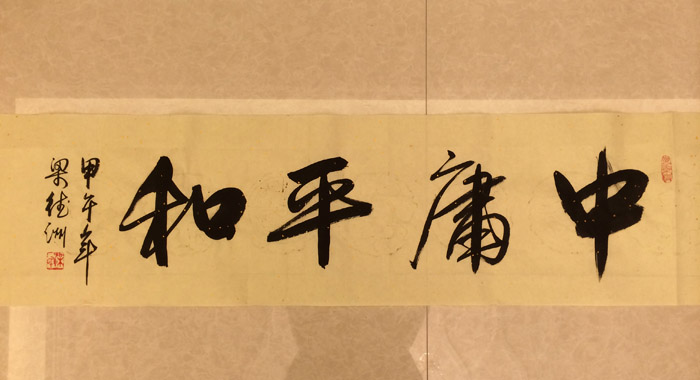 中庸平和
甲午年
梁德洲